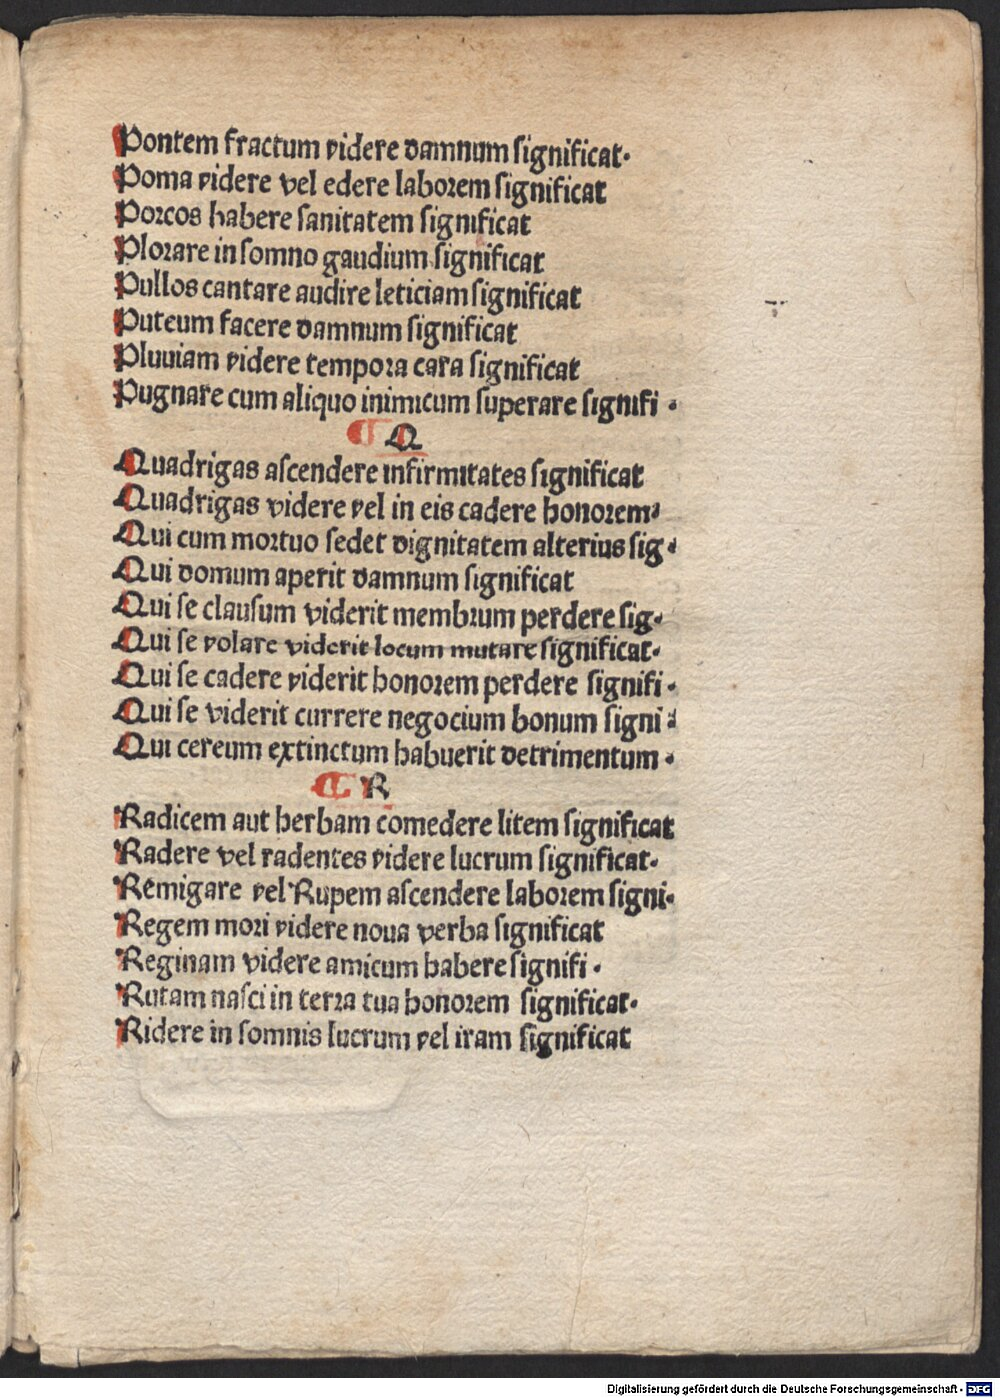 Pontem fractum videre damnum significat.
Poma videre vel edere laborem significat
Porcos habere sanitatem significat
Plorare in somno gaudium significat
Pullos cantare audire leticiam significat
Puteum facere damnum significat
Pluviam videre tempora cara significat
Pugnare cum aliquo inimicum superare signifi.
¶ Q
Quadrigas ascendere infirmitates significat
Quadrigas videre vel in eis cadere honorem.
Qui cum mortuo sedet dignitatem alterius sig.
Qui domum aperit damnum significat
Qui se clausum viderit membrum perdere sig.
Qui se volare viderit locum mutare significat.
Qui se cadere viderit honorem perdere signifi.
Qui se viderit currere negocium bonum signi.
Qui cereum extinctum habuerit detrimentum.
¶ R
Radicem aut herbam comedere litem significat
Radere vel radentes videre lucrum significat.
Remigare vel Rupem ascendere laborem signi.
Regem mori videre noua verba significat
Reginam videre amicum habere signifi.
Rutam nasci in terra tua honorem significat.
Ridere in somnis lucrum vel iram significat
Digitalisierung gefördert durch die Deutsche Forschungsgemeinschaft - DFG